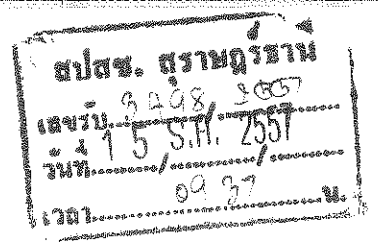 สปสช. สุราษฎร์ธานี
เลขรับ 3498/2557
วันที่ 15 ธ.ค. 2557
เวลา 09 37 น.